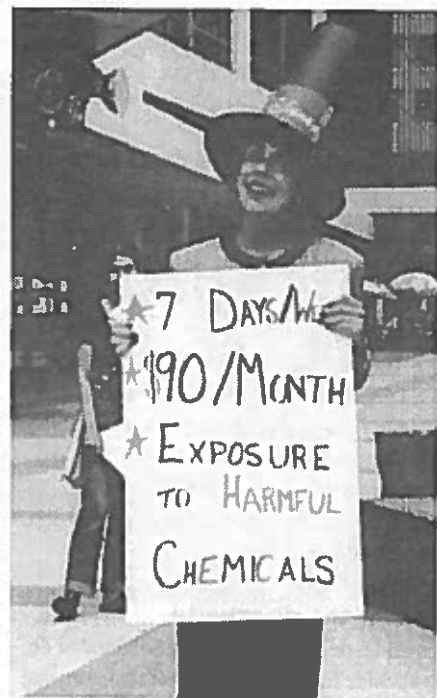 7 DAYS/W
$90/MONTH
EXPOSURE
TO HARMFUL
CHEMICALS